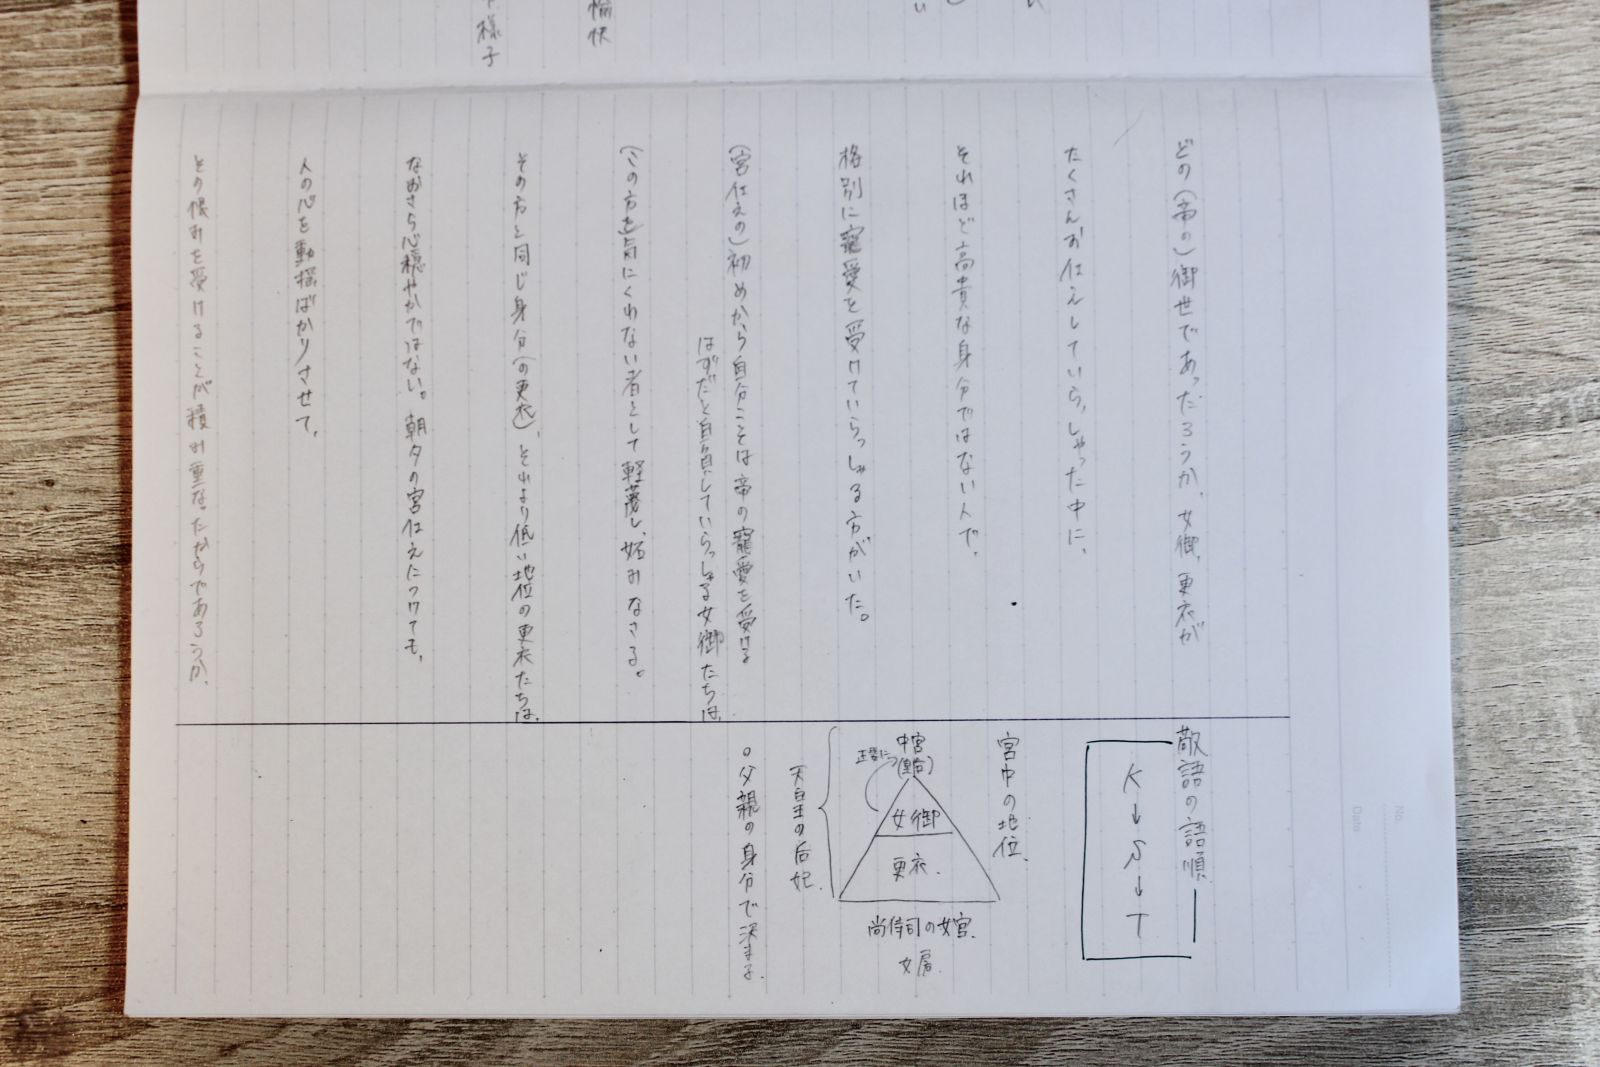 愉快
様子
どの（帝の）御世であっただろうか、女御、更衣が
たくさんお仕えしていらっしゃった中に、
それほど高貴な身分ではない人で、
格別に寵愛を受けていらっしゃる方がいた。
（宮仕えの）初めから自分こそは帝の寵愛を受ける
はずだと自負していらっしゃる女御たちは、
（この方を）気にくわない者として軽蔑し、妬みなさる。
その方と同じ身分（の更衣）、それより低い地位の更衣たちは、
なおさら心穏やかではない。朝夕の宮仕えにつけても、
人の心を動揺ばかりさせて、
その恨みを受けることが積み重なったからであろうか、
敬語の語順
K→S→T
宮中の地位
中宮
(皇后)
正妻に
女御
更衣
尚侍司の女官、
女房
天皇の后妃
○父親の身分で決まる
No.
Date